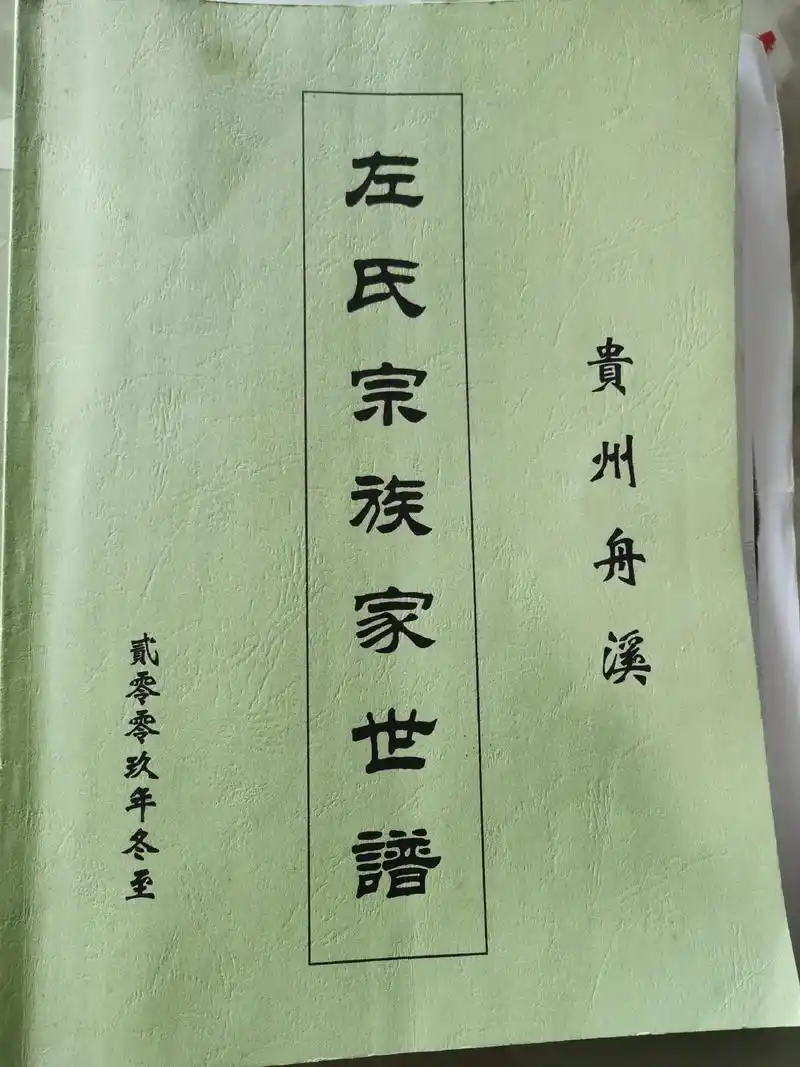 貴州舟溪
左氏宗族家世譜
貳零零玖年冬至